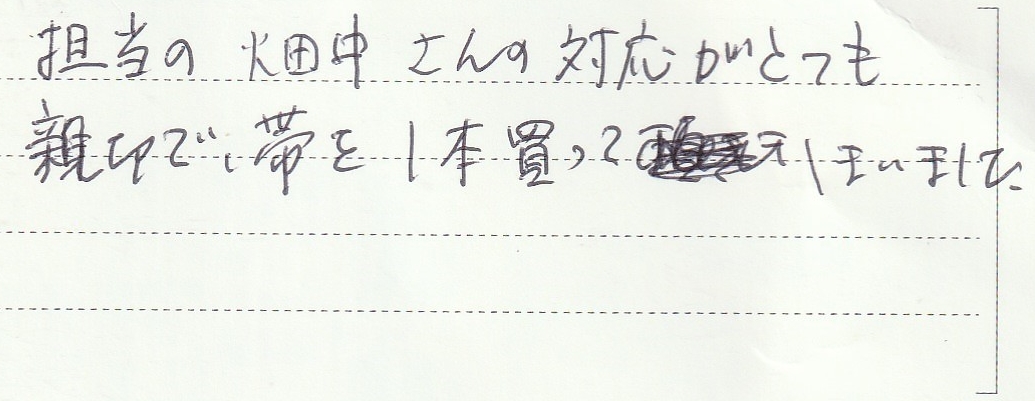 担当の 畑中 さんの 対応がとっても
親切で、帯を1本買って しまいました